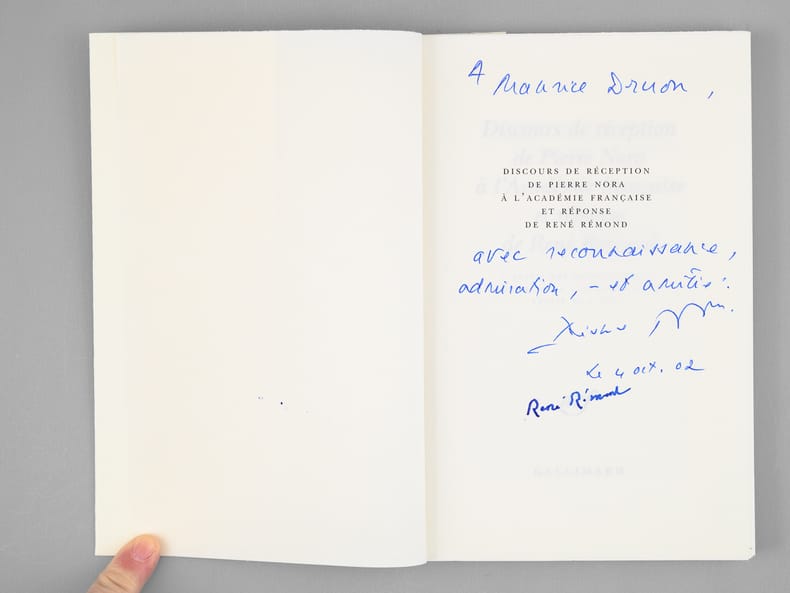 A Maurice Druon,
DISCOURS DE RÉCEPTION
DE PIERRE NORA
À L'ACADÉMIE FRANÇAISE
ET RÉPONSE
DE RENÉ RÉMOND
avec reconnaissance,
admiration, – et amitié :
Pierre Nora.
Le 4 oct. 02
René Rémond
GALLIMARD